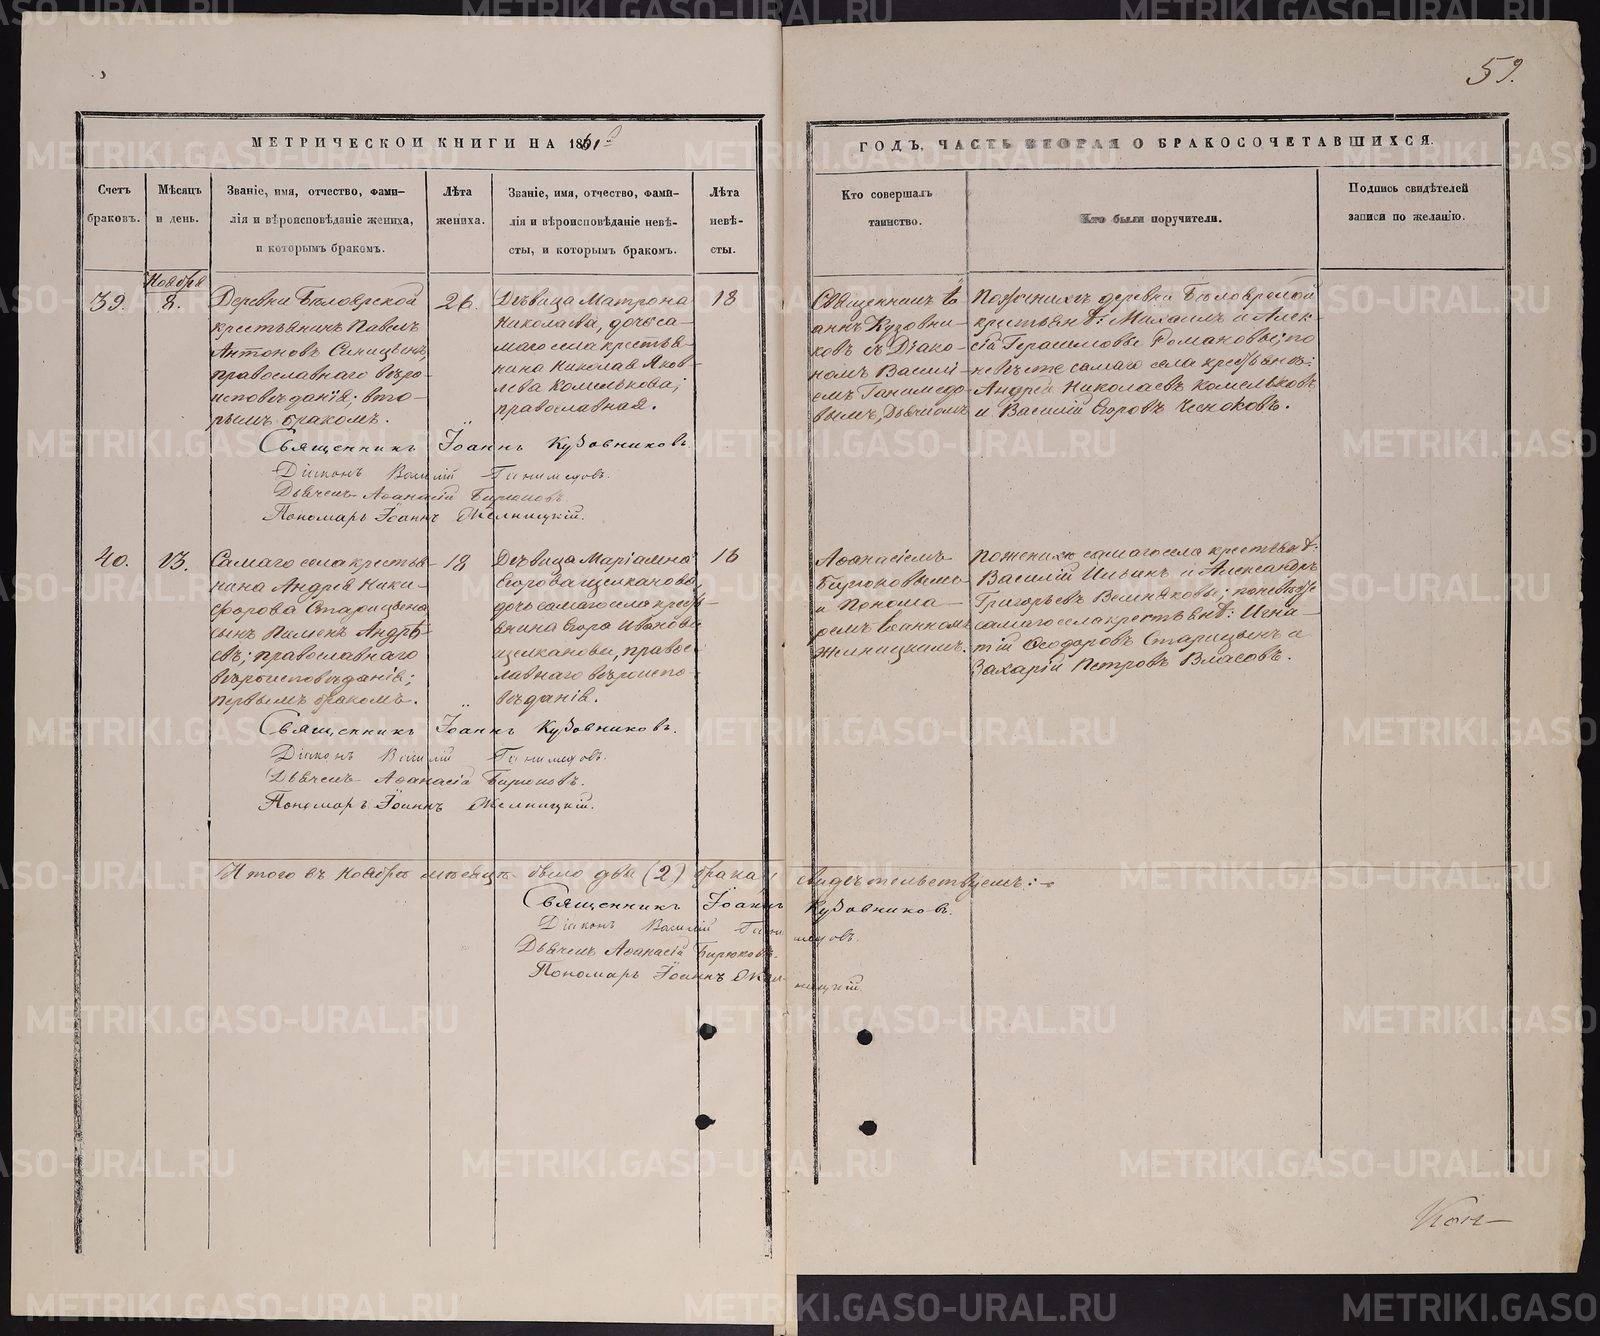 59.
МЕТРИЧЕСКОЙ КНИГИ НА 1861й
ГОДЪ, ЧАСТЬ ВТОРАЯ О БРАКОСОЧЕТАВШИХСЯ.
Счетъ браковъ.
Мѣсяцъ и день.
Званіе, имя, отчество, фами-
лія и вѣроисповѣданіе жениха,
и которымъ бракомъ.
Лѣта жениха.
Званіе, имя, отчество, фами-
лія и вѣроисповѣданіе невѣ-
сты, и которымъ бракомъ.
Лѣта невѣ-
сты.
Кто совершалъ
таинство.
Кто были поручители.
Подпись свидѣтелей
записи по желанію.
39.
Ноября
8.
Деревни Бѣлоярской
крестьянинъ Павелъ
Антоновъ Синицынъ,
православнаго вѣро-
исповѣданія; вто-
рымъ бракомъ.
26.
Дѣвица Матрона
Николаева, дочь са-
маго села крестья-
нина Николая Яков-
лева Комелькова;
православная.
18
Священникъ Іо
аннъ Кузовни-
ковъ съ Діако-
номъ Василі-
емъ Ганимедо-
вымъ, Дьячкомъ
По женихѣ деревни Бѣлоярской
крестьяне: Михаилъ и Алек-
сій Герасимовы Романовы; по
невѣстѣ самаго села крестьяне:
Андрей Николаевъ Комельковъ
и Василій Егоровъ Чесноковъ.
Священникъ Іоаннъ Кузовниковъ.
Діаконъ Василій Ганимедовъ.
Дьячекъ Аѳанасій Бирюковъ.
Пономарь Іоаннъ Жилницкій.
40.
13.
Самаго села крестья-
нина Андрея Ники-
форова Старицына
сынъ Пименъ Андрѣ-
евъ; православнаго
вѣроисповѣданія;
первымъ бракомъ.
18
Дѣвица Маріамна
Егорова Щелканова,
дочь самаго села крест-
янина Егора Иванова
Щелканова, правос-
лавнаго вѣроиспо-
вѣданія.
16
Аѳанасіемъ
Бирюковымъ
и Понома-
ремъ Іоанномъ
Жилницкимъ.
По женихѣ самаго села крестьяне:
Василій Ильинъ и Александръ
Григорьевъ Вешняковы; по невѣстѣ
самаго села крестьяне: Игна-
тій Ѳеодоровъ Старицынъ и
Захарій Петровъ Власовъ.
Священникъ Іоаннъ Кузовниковъ.
Діаконъ Василій Ганимедовъ.
Дьячекъ Аѳанасій Бирюковъ.
Пономарь Іоаннъ Жилницкій.
Итого въ Ноябрѣ мѣсяцѣ было два (2) брака, свидѣтельствуемъ:
Священникъ Іоаннъ Кузовниковъ.
Діаконъ Василій Ганимедовъ.
Дьячекъ Аѳанасій Бирюковъ.
Пономарь Іоаннъ Жилницкій.
METRIKI.GASO-URAL.RU